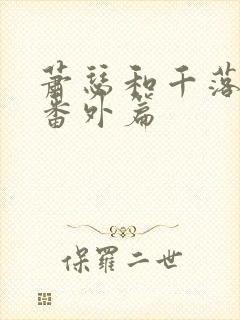 萧瑟和千落
番外篇
保罗二世